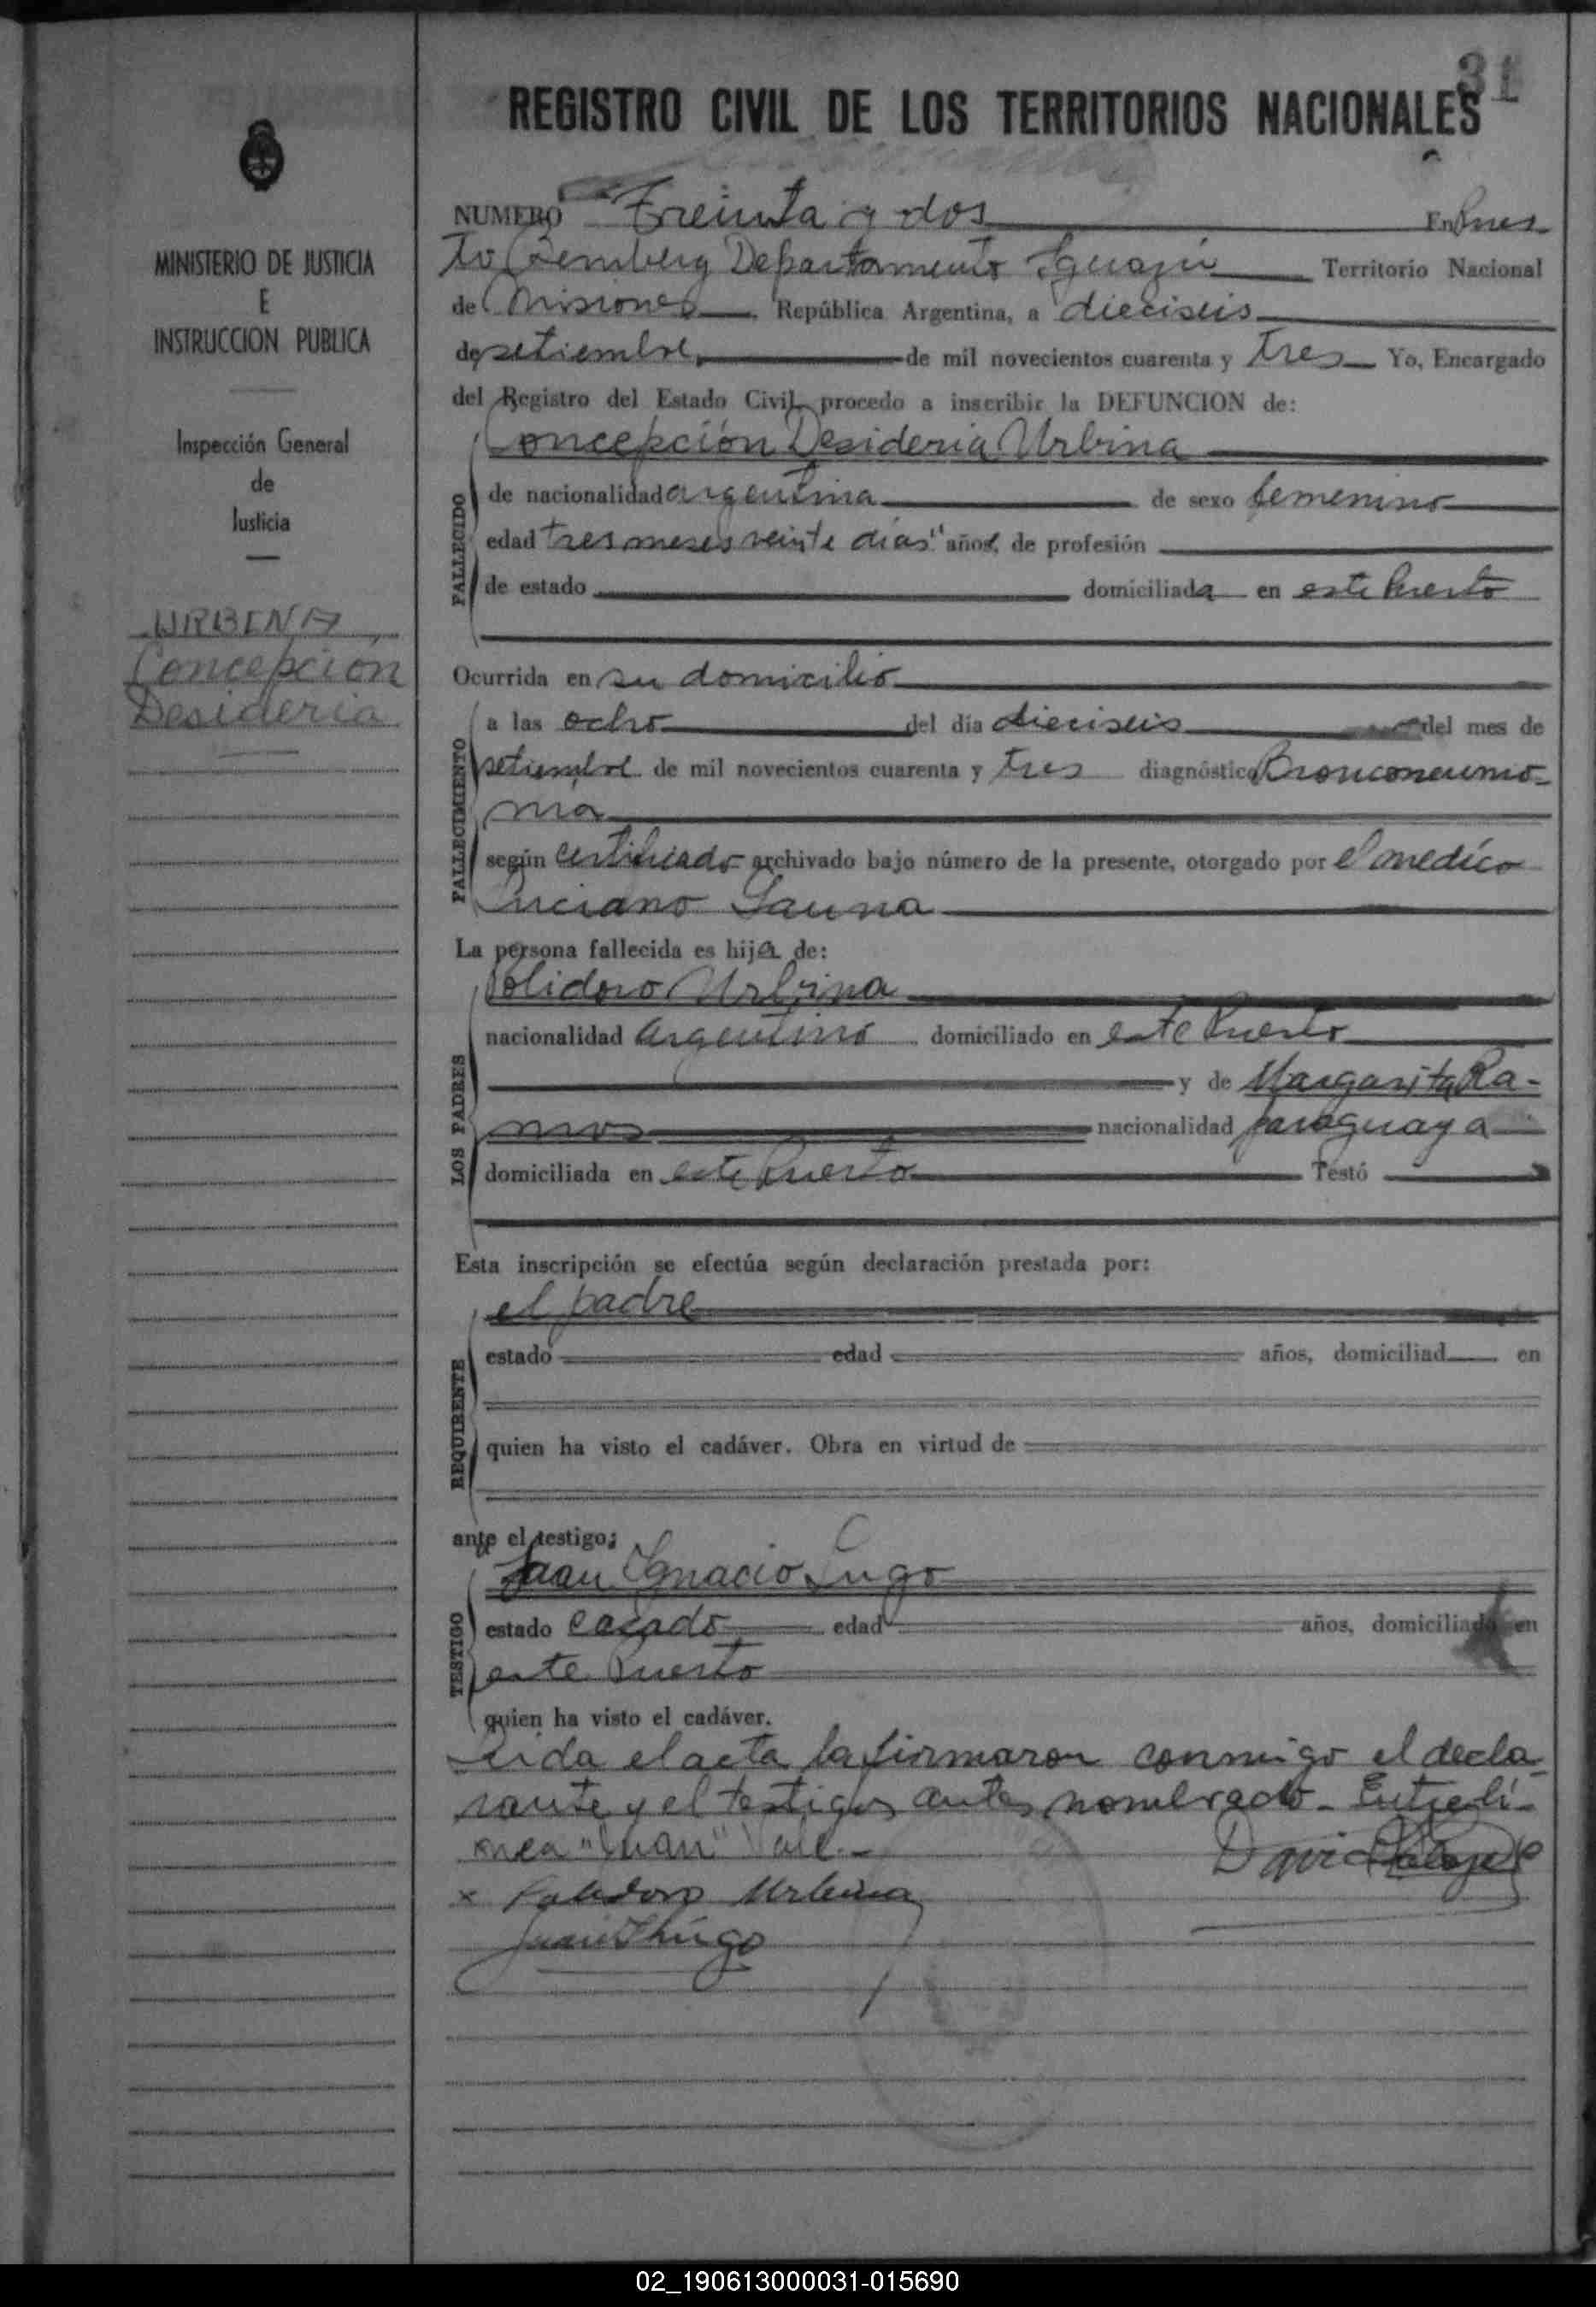 31
REGISTRO CIVIL DE LOS TERRITORIOS NACIONALES
MINISTERIO DE JUSTICIA
E
INSTRUCCION PUBLICA
Inspección General
de
Justicia
URBINA,
Concepción
Desideria
NUMERO Treinta y dos En Puer
to Bemberg Departamento Iguazú Territorio Nacional
de Misiones, República Argentina, a dieciseis
de setiembre, de mil novecientos cuarenta y tres Yo, Encargado
del Registro del Estado Civil, procedo a inscribir la DEFUNCION de:
Concepción Desideria Urbina
FALLECIDO
de nacionalidad argentina de sexo femenino
edad tres meses veinte días" años, de profesión
de estado domiciliada en este Puerto
Ocurrida en su domicilio
FALLECIMIENTO
a las ocho del día dieciseis del mes de
setiembre de mil novecientos cuarenta y tres diagnóstico Bronconeumo-
nia
según certificado archivado bajo número de la presente, otorgado por el medíco
Luciano
La persona fallecida es hija de:
LOS PADRES
Polidoro Urbina
nacionalidad argentino domiciliado en este Puerto
y de Margarita Ra-
mos nacionalidad paraguaya
domiciliada en este Puerto Testó
Esta inscripción se efectúa según declaración prestada por:
REQUIRENTE
el padre
estado edad años, domiciliad en
quien ha visto el cadáver. Obra en virtud de
ante el testigo:
TESTIGO
Juan Ignacio Lugo
estado casado edad años, domiciliado en
este Puerto
quien ha visto el cadáver.
Leida el acta la firmaron conmigo el decla-
rante y el testigo antes nombrado - Entreli-
nea "Juan" Vale.-
David
x Polidoro Urbina
Juan I Lugo
02_190613000031-015690